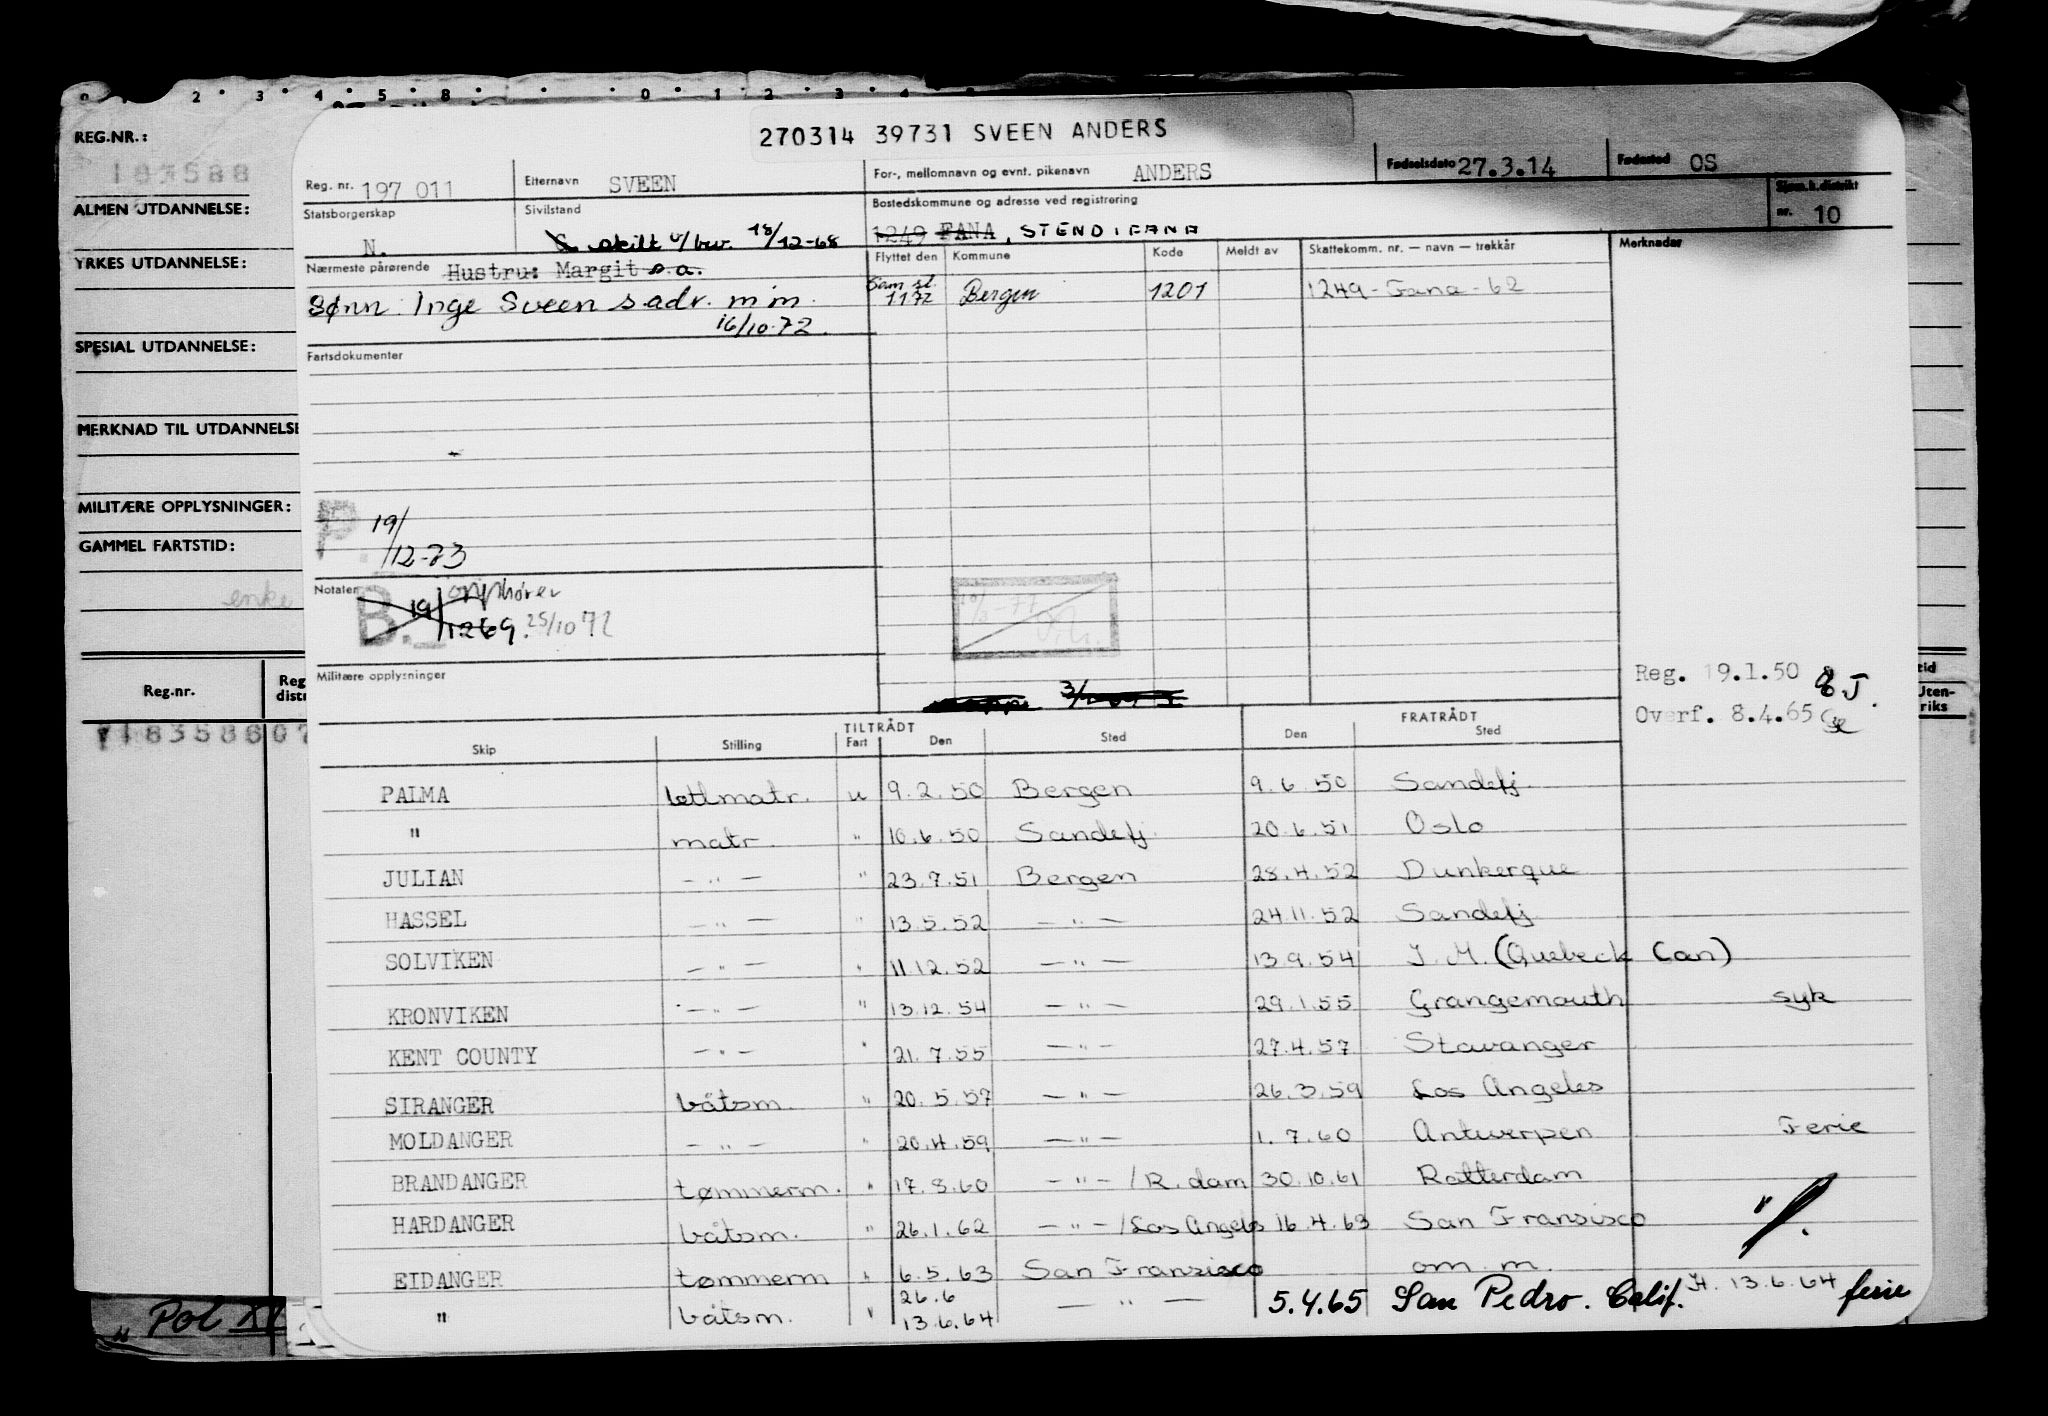 270314 39731 SVEEN ANDERS
REG.NR.:
183588
ALMEN UTDANNELSE:
YRKES UTDANNELSE:
SPESIAL UTDANNELSE:
MERKNAD TIL UTDANNELSE
MILITÆRE OPPLYSNINGER:
GAMMEL FARTSTID:
enke
Reg.nr.
Pol XV
Reg. nr. 197 011 Etternavn SVEEN For-, mellomnavn og evnt. pikenavn ANDERS Fødselsdato 27.3.14 Fødested OS
Statsborgerskap N. Sivilstand skilt u/bv. 18/12-68 Bostedskommune og adresse ved registrering 1249 FANA, STEND I FANA Sjøm.k.distrikt nr. 10
Nærmeste pårørende Hustru: Margit s.a. Flyttet den Kommune Kode Meldt av Skattekomm. nr. — navn — trekkår Merknader
Sønn: Inge Sveen s.adr. m.m. 1172 Bergen 1201 1249 - Fana - 62
16/10-72.
Fartsdokumenter
P. 19/12-73
Notater
B. 19/1269. opphører 25/10 72
Militære opplysninger
Reg. 19.1.50
Overf. 8.4.65
TILTRÅDT FRATRÅDT
Skip Stilling Fart Den Sted Den Sted
PALMA lettmatr. u 9.2.50 Bergen 9.6.50 Sandefj.
" matr. " 10.6.50 Sandefj. 20.6.51 Oslo
JULIAN — " — " 23.7.51 Bergen 28.4.52 Dunkerque
HASSEL — " — " 13.5.52 — " — 24.11.52 Sandefj.
SOLVIKEN — " — " 11.12.52 — " — 13.9.54 I.M. (Quebeck Can)
KRONVIKEN — " — " 13.12.54 — " — 29.1.55 Grangemouth syk
KENT COUNTY — " — " 21.7.55 — " — 27.4.57 Stavanger
SIRANGER båtsm. " 20.5.57 — " — 26.3.59 Los Angeles
MOLDANGER — " — " 20.4.59 — " — 1.7.60 Antwerpen Ferie
BRANDANGER tømmerm. " 17.8.60 — " — /R.dam 30.10.61 Rotterdam
HARDANGER båtsm. " 26.1.62 — " — /Los Angeles 16.4.63 San Fransisco "
EIDANGER tømmerm " 6.5.63 San Franzisco om m.
26.6
" båtsm. " 13.6.64 — " — 5.4.65 San Pedro. Calif. 13.6.64 ferie